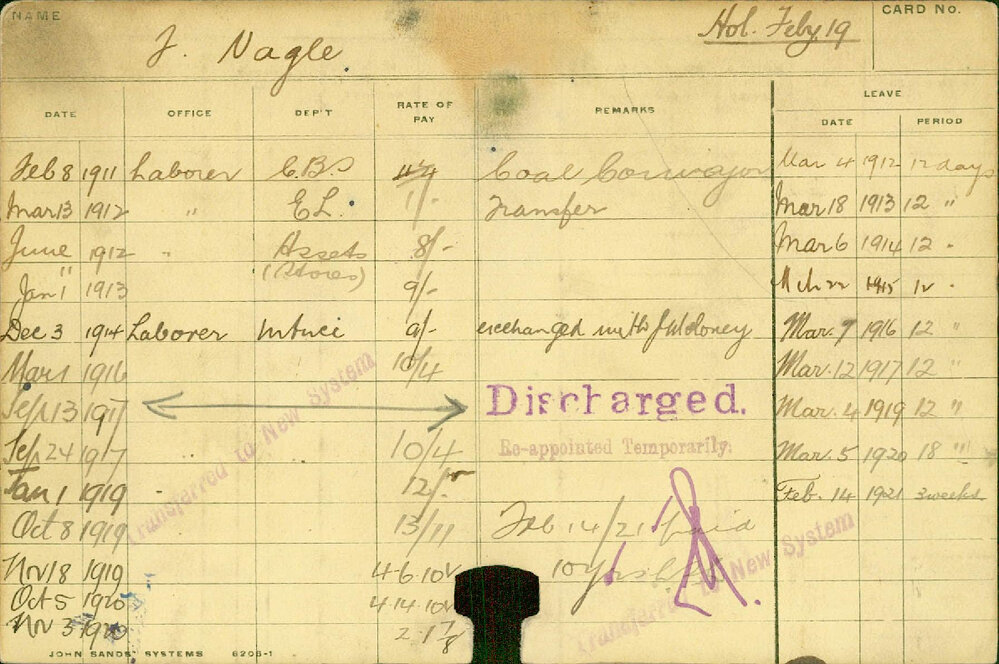 NAME
J. Nagle.
Hol. Feby. 19
CARD No.
DATE OFFICE DEP'T RATE OF PAY REMARKS LEAVE
DATE PERIOD
Feb 8 1911 Laborer E.B.S Coal Conveyor Mar 4 1912 12 days
Mar 13 1912 " E.L. 1/- Transfer Mar 18 1913 12 "
June 1912 " Assets 8/- Mar 6 1914 12 "
(Stores)
Jan 1 1913 9/- Mch 22 1915 12 "
Dec 3 1914 Laborer 9/- exchanged with J Moloney Mar. 7 1916 12 "
Mar 1 1916 10/4 Mar. 12 1917 12 "
Sep 13 1917 Discharged. Mar. 4 1919 12 "
Sep 24 1917 10/4 Re-appointed Temporarily. Mar. 5 1920 18 "
Jan 1 1919 12/- Feb. 14 1921 3 weeks
Oct 8 1919 13/11 Feb 14/21 paid
Nov 18 1919 4.6.10 10 yrs
Oct 5 1920 4.14.10
Nov 3 1920 2.17/8
Transferred to New System
Transferred to New System
JOHN SANDS' SYSTEMS 6208-1